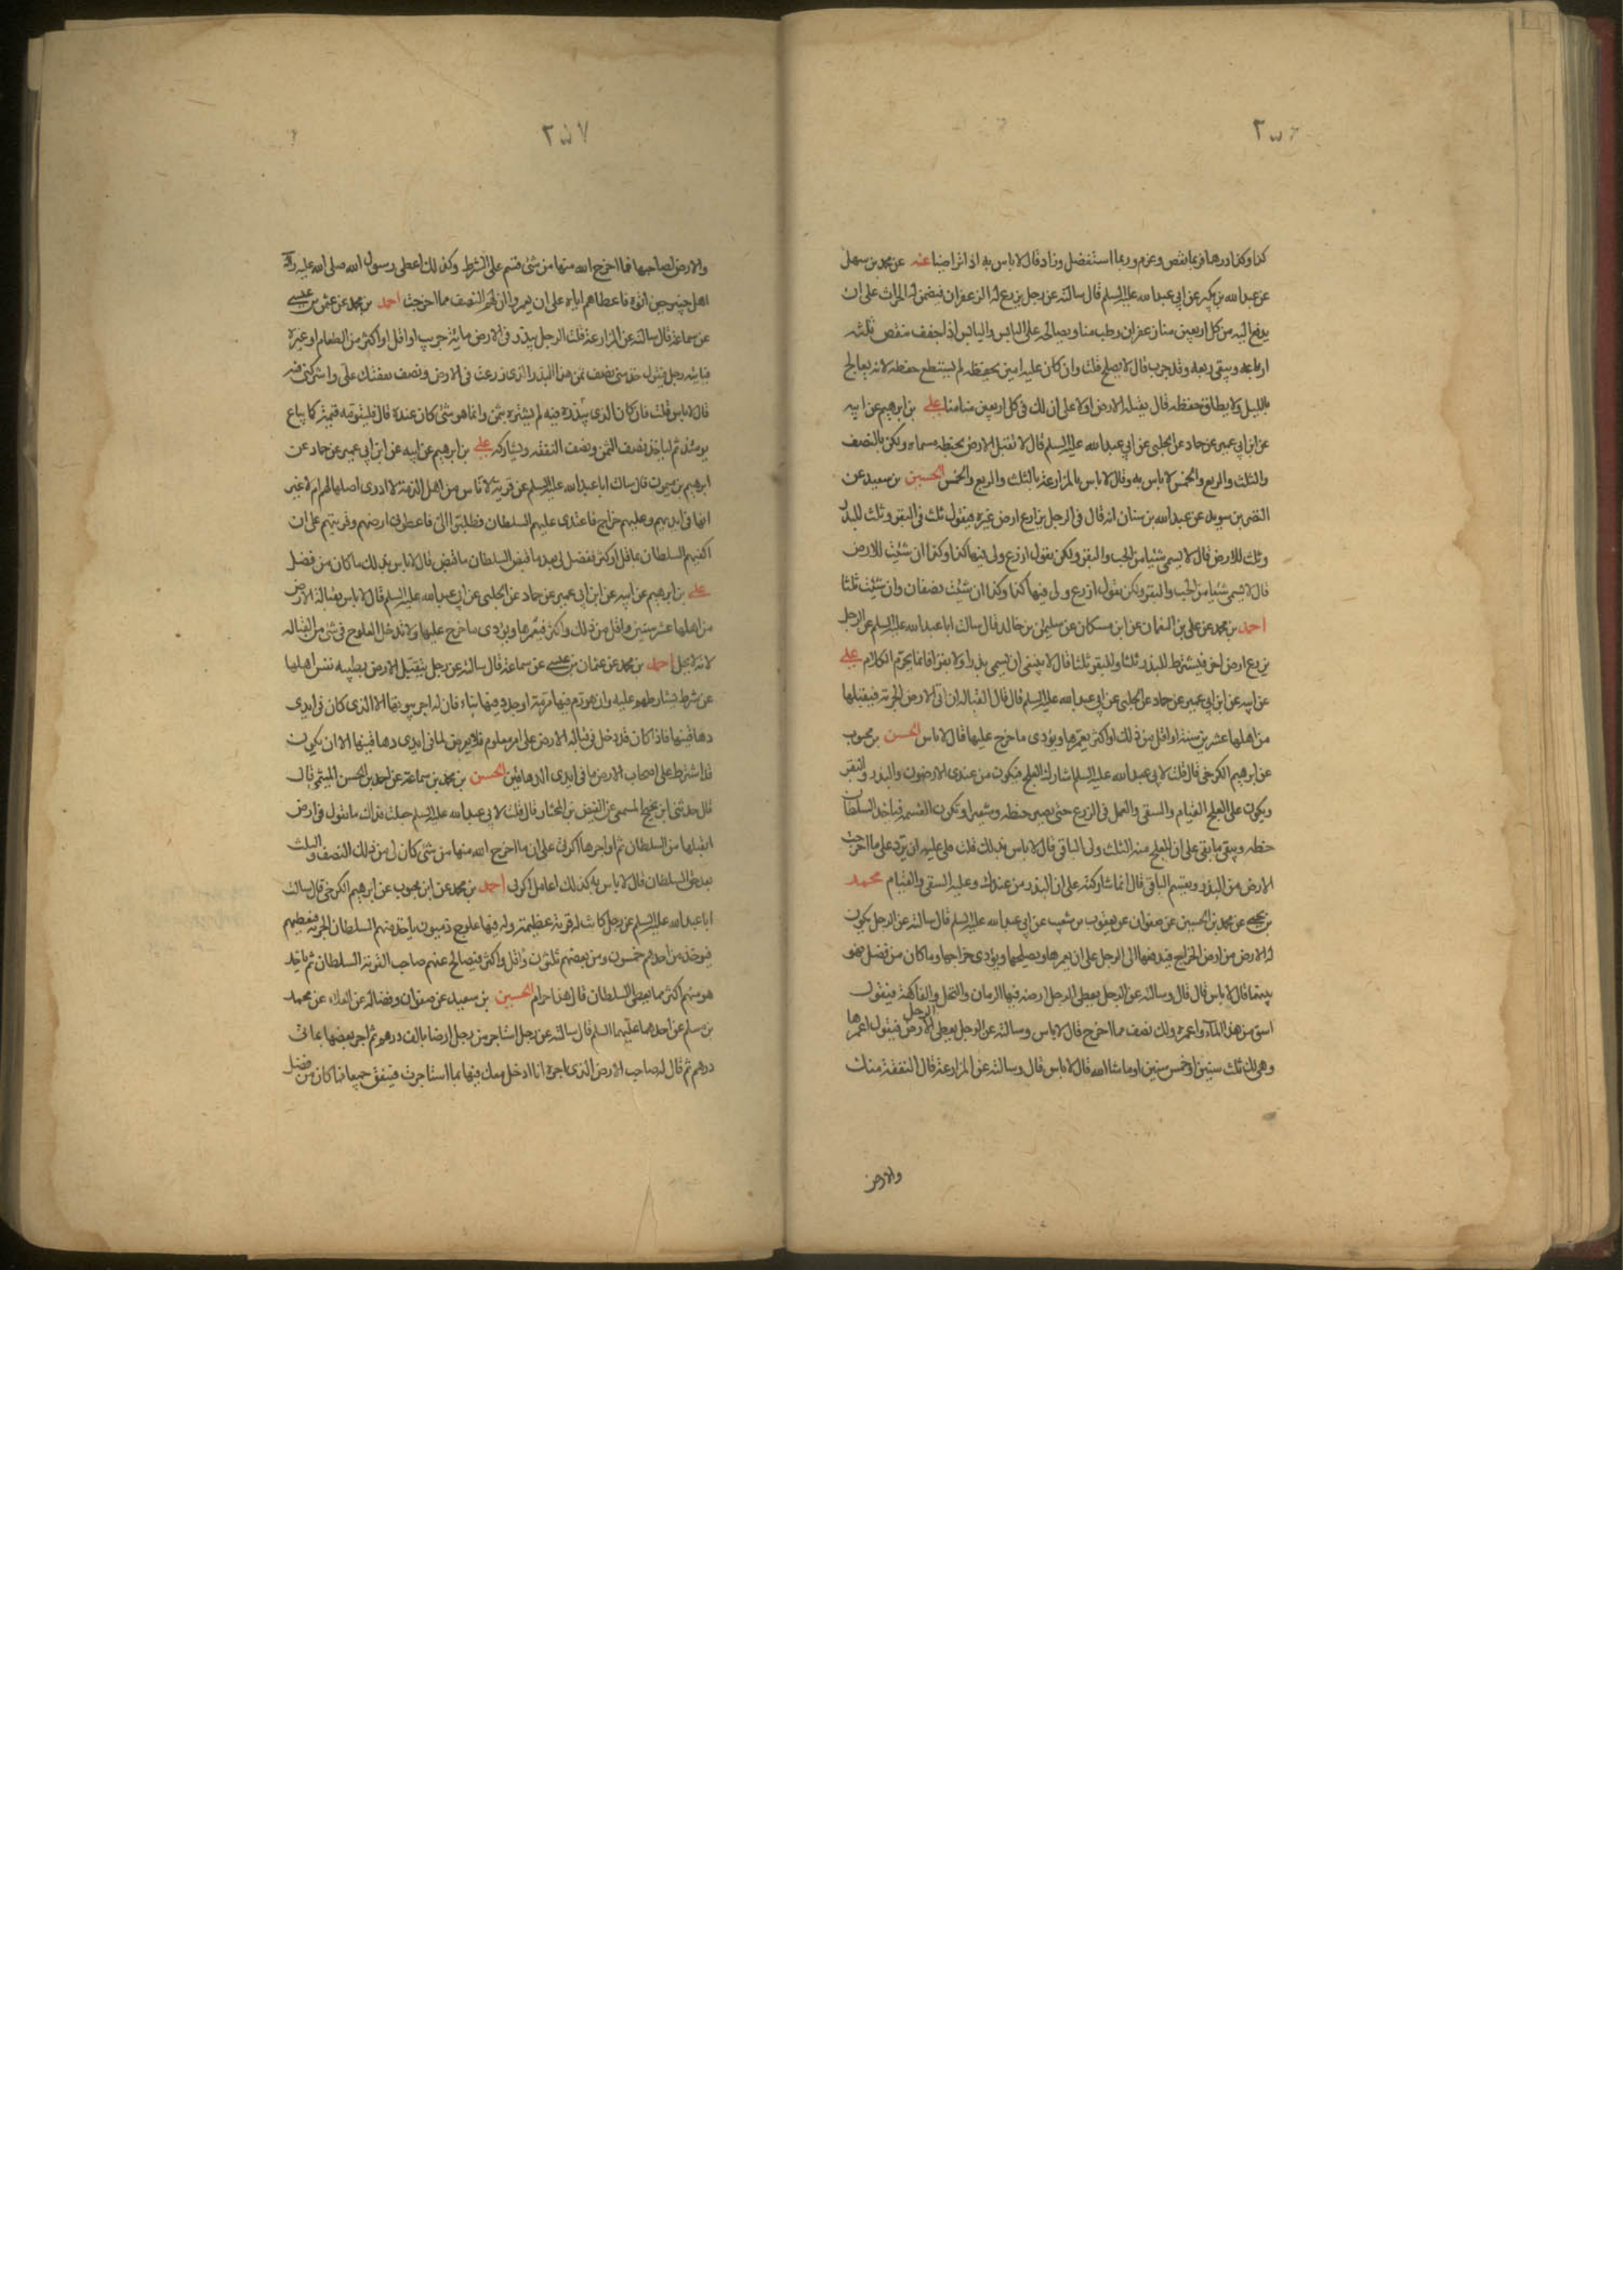 ٣٥٦
كذا وكذا درهما فربما نقص وغرم وربما استفضل وزاد قال لا باس به اذا تراضيا عنه عن محمد بن سهل
عن عبد الله بن بكير عن ابي عبد الله عليه السلم قال سالته عن رجل يزرع له الزعفران فيضمن له الحراث على ان
يدفع اليه من كل اربعين منا زعفران رطب منا ويصالحه على اليابس واليابس اذا جفف ينقص ثلثه
ارباعه ويبقى ربعه وقد جرب قال لا يصلح قلت وان كان عليه امين يحفظه لم يستطع حفظه لانه يعالج
بالليل ولا يطاق حفظه قال يقبله الارض اولا على ان لك في كل اربعين منا منا علي بن ابرهيم عن ابيه
عن ابن ابي عمير عن حماد عن الحلبي عن ابي عبد الله عليه السلم قال لا تقبل الارض بحنطه مسماه ولكن بالنصف
والثلث والربع والخمس لا باس به وقال لا باس بالمزارعة بالثلث والربع والخمس الحسين بن سعيد عن
النضر بن سويد عن عبد الله بن سنان انه قال في الرجل يزارع ارض غيره فيقول ثلث في البقر وثلث للبذر
وثلث للارض قال لا يسمي شيئا من الحب والبقر ولكن يقول ازرع ولي فيها كذا وكذا ان شئت للارض
قال لا يسمي شيئا من الحب والبقر ولكن يقول ازرع ولي فيها كذا وكذا ان شئت نصفان وان شئت ثلثا
احمد بن محمد عن علي بن النعمان عن ابن مسكان عن سليمن بن خالد قال سالت ابا عبد الله عليه السلم عن الرجل
يزرع ارض اخر فيشترط للبذر ثلثا وللبقر ثلثا قال لا ينبغي ان يسمي بذرا ولا بقرا فانما يحرم الكلام علي
عن ابيه عن ابن ابي عمير عن حماد عن الحلبي عن ابي عبد الله عليه السلم قال قال القباله ان تاتي الارض الخربه فيقبلها
من اهلها عشرين سنة او اقل من ذلك او اكثر يعمرها ويؤدي ما خرج عليها قال لا باس الحسن بن محبوب
عن ابرهيم الكرخي قال قلت لابي عبد الله عليه السلم اشارك العلج فيكون من عندي الارضون والبذر والبقر
ويكون على العلج القيام والسقي والعمل في الزرع حتى يصير حنطه وشعيرا وتكون القسمه فياخذ السلطان
حظه ويبقى ما بقي على ان للعلج منه الثلث ولي الباقي قال لا باس بذلك قلت فلي عليه ان يرد على ما اخرجت
الارض من البذر ويقسم الباقي قال انما شاركته على ان البذر من عندك وعليه السقي والقيام محمد
بن يحيى عن محمد بن الحسين عن صفوان عن يعقوب بن شعيب عن ابي عبد الله عليه السلم قال سالته عن الرجل يكون
له الارض من ارض الخراج فيدفعها الى الرجل على ان يعمرها ويصلحها ويؤدي خراجها وما كان من فضل فهو
بينهما قال لا باس قال قال وسالته عن الرجل يعطي الرجل ارضه فيها الرمان والنخل والفاكهة فيقول
اسق من هذا الماء واعمره ولك نصف مما اخرج قال لا باس وسالته عن الرجل يعطي الرجل الارض فيقول اعمرها
وهي لك ثلث سنين او خمس سنين او ما شاء الله قال لا باس قال وسالته عن المزارعة قال النفقة منك
والارض
٣٥٧
والارض لصاحبها فما اخرج الله منها من شئ قسم على الشرط وكذلك اعطى رسول الله صلى الله عليه واله
اهل خيبر حين اتوه فاعطاهم اياه على ان يعمروا ان لهم النصف مما اخرجت احمد بن محمد عن عثمن بن عيسى
عن سماعة قال سالته عن المزارعة قلت الرجل يبذر في الارض مائة جريب او اقل او اكثر من الطعام او غيره
فياتيه رجل فيقول خذ مني نصف ثمن هذا البذر الذي زرعت في الارض ونصف نفقتك علي واشركني فيه
قال لا باس قلت فان كان الذي يبذره فيه لم يشتره بثمن وانما هو شئ كان عنده قال فليقومه قيمة كما يباع
يومئذ ثم لياخذ نصف الثمن ونصف النفقه ويشاركه علي بن ابرهيم عن ابيه عن ابن ابي عمير عن حماد عن
ابرهيم بن ميمون قال سالت ابا عبد الله عليه السلم عن قرية لاناس من اهل الذمة لا ادري اصلها لهم ام لا غير
انها في ايديهم وعليهم خراج فاعتدى عليهم السلطان فطلبوا الي فاعطوني ارضهم وقريتهم على ان
اكفيهم السلطان بما قل او كثر ففضل لي بعد ما قبض السلطان ما قبض قال لا باس بذلك ما كان من فضل
علي بن ابرهيم عن ابيه عن ابن ابي عمير عن حماد عن الحلبي عن ابي عبد الله عليه السلم قال لا باس بقبالة الارض
من اهلها عشر سنين واقل من ذلك واكثر فيعمرها ويؤدي ما خرج عليها ولا تدخل العلوج في شئ من القباله
لانه لا يحل احمد بن محمد عن عثمان بن عيسى عن سماعة قال سالته عن رجل يتقبل الارض بطيبه نفس اهلها
عن شرط يشارطهم عليه وان هو رم فيها مرمة او جدد فيها بناء فان له اجر بيوتها الا الذي كان في ايدي
دهاقينها فاذا كان قد دخل في قبالة الارض على امر معلوم فلا يعرض لما في ايدي دهاقينها الا ان يكون
قد اشترط على اصحاب الارض ما في ايدي الدهاقين الحسن بن محمد بن سماعة عن احمد بن الحسن الميثمي قال
قال حدثني ابن نجيح المسمعي عن الفيض بن المختار قال قلت لابي عبد الله عليه السلم جعلت فداك ما تقول في ارض
اتقبلها من السلطان ثم اواجرها اكرتي على ان ما اخرج الله منها من شئ كان لي من ذلك النصف والثلث
بعد حق السلطان قال لا باس به كذلك اعامل اكرتي احمد بن محمد عن ابن محبوب عن ابرهيم الكرخي قال سالت
ابا عبد الله عليه السلم عن رجل كانت له قرية عظيمة وله فيها علوج ذميون ياخذ منهم السلطان الجزية فيعطيهم
فيؤخذ من احدهم خمسون ومن بعضهم ثلثون واقل واكثر فيصالح عنهم صاحب القرية السلطان ثم ياخذ
هو منهم اكثر مما يعطى السلطان قال هذا حرام الحسين بن سعيد عن صفوان وفضالة عن العلاء عن محمد
بن مسلم عن احدهما عليهما السلم قال سالته عن رجل استاجر من رجل ارضا بالف درهم ثم اجر بعضها بمائتي
درهم ثم قال له صاحب الارض الذي اجره انا ادخل معك فيها بما استاجرت فينفق جميعا فما كان من فضل